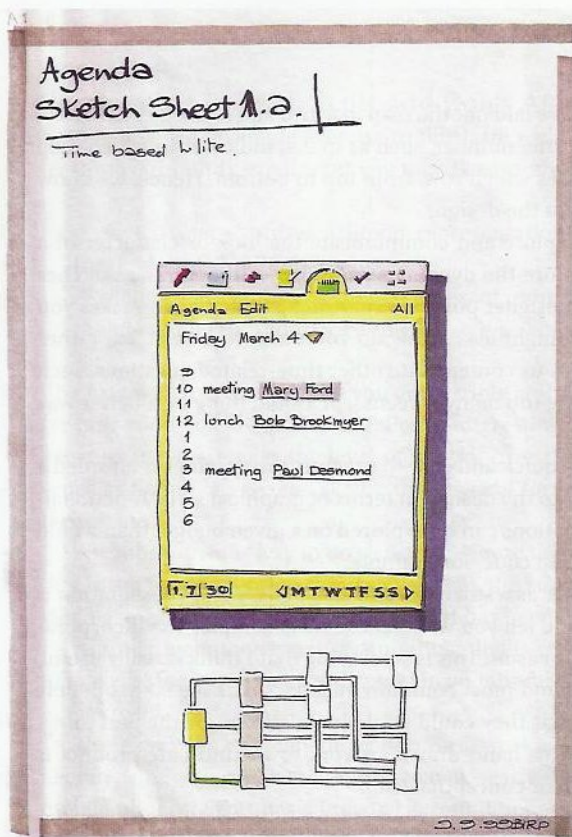 Agenda
Sketch Sheet 1.a.
Time based
Agenda Edit All
Friday March 4
9
10 meeting Mary Ford
11
12 lunch Bob Brookmyer
1
2
3 meeting Paul Desmond
4
5
6
1. 7 30 M T W T F S S